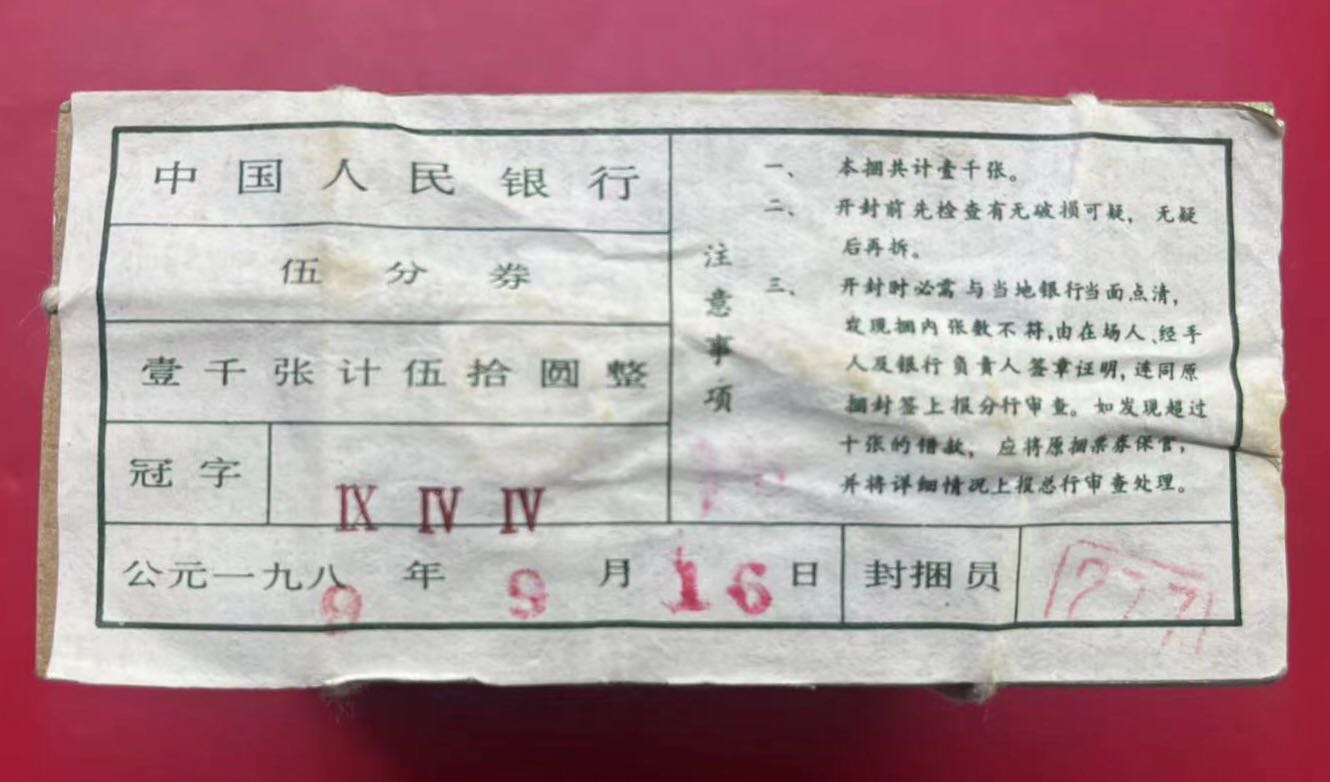 中国人民银行
伍分券
壹千张计伍拾圆整
冠字 IX IV IV
公元一九八9年9月16日 封捆员
注意事项
一、 本捆共计壹千张。
二、 开封前先检查有无破损可疑，无疑
后再拆。
三、 开封时必需与当地银行当面点清，
发现捆内张数不符，由在场人、经手
人及银行负责人签章证明，连同原
捆封签上报分行审查。如发现超过
十张的错款，应将原捆票券保管，
并将详细情况上报总行审查处理。